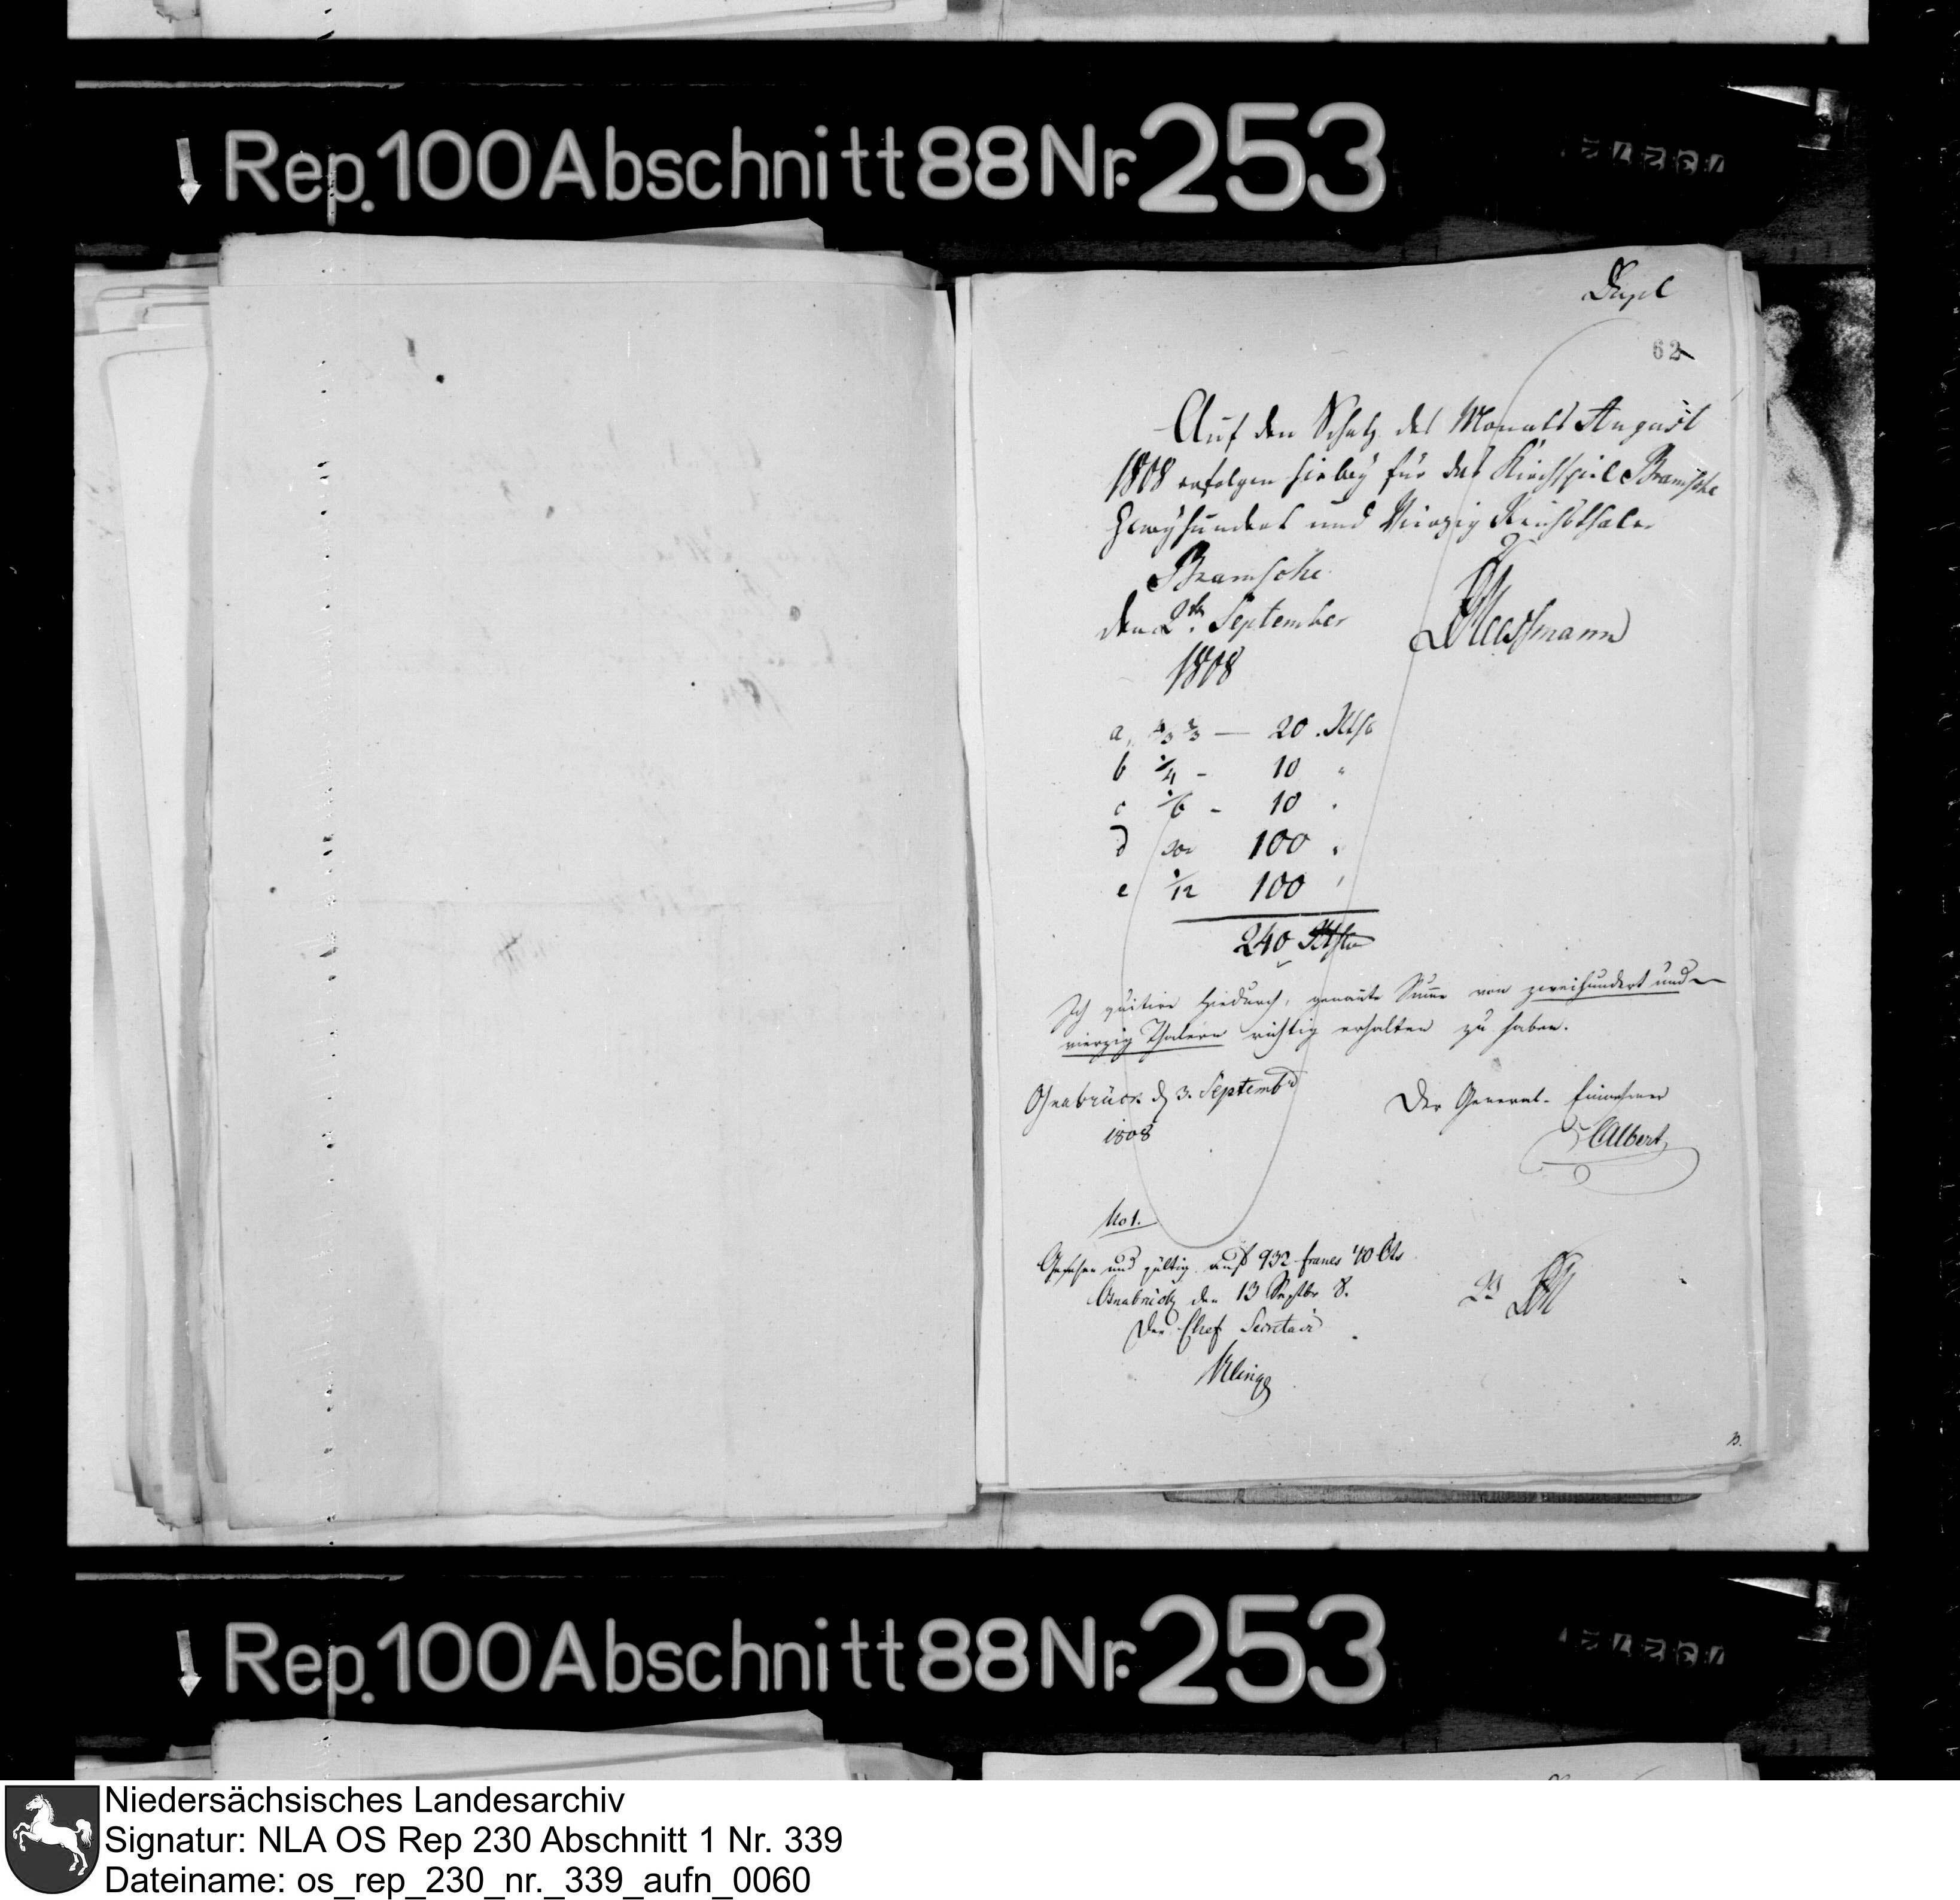 Rep. 100 Abschnitt 88 Nr. 253
Dupl
62
Auf den Schatz des Monats August
1808 erfolgen hiebey für das Kirchspiel Bramsche
Zweyhundert und Vierzig Reichsthaler
Bramsche
den 2ten September
1808
a, 2/3 — 20 Rthr
b 1/4 - 10 "
c 1/6 - 10 "
d 100 "
e 1/12 100 "
240 Rthr
Ich quitire hiedurch, genante Sume von zweihundert und
vierzig Thalern richtig erhalten zu haben.
Osnabrück d 3. Septembr
1808
Der General-Einnehmer
Albert
No 1.
Gesehen und gültig auf 932 francs 40 Cts
Osnabrück den 13 Septbr 8.
Der Chef Secretair
Rep. 100 Abschnitt 88 Nr. 253
Niedersächsisches Landesarchiv
Signatur: NLA OS Rep 230 Abschnitt 1 Nr. 339
Dateiname: os_rep_230_nr._339_aufn_0060